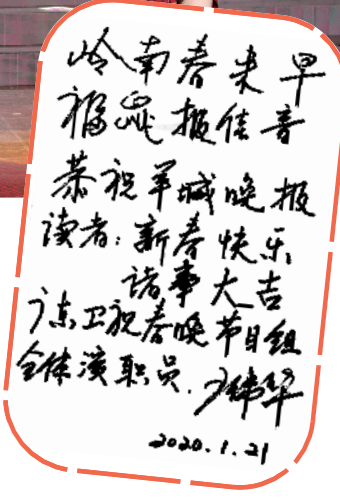 岭南春来早
福鼠报佳音
恭祝羊城晚报
读者：新春快乐
诸事大吉
广东卫视春晚节目组
全体演职员．
2020.1.21